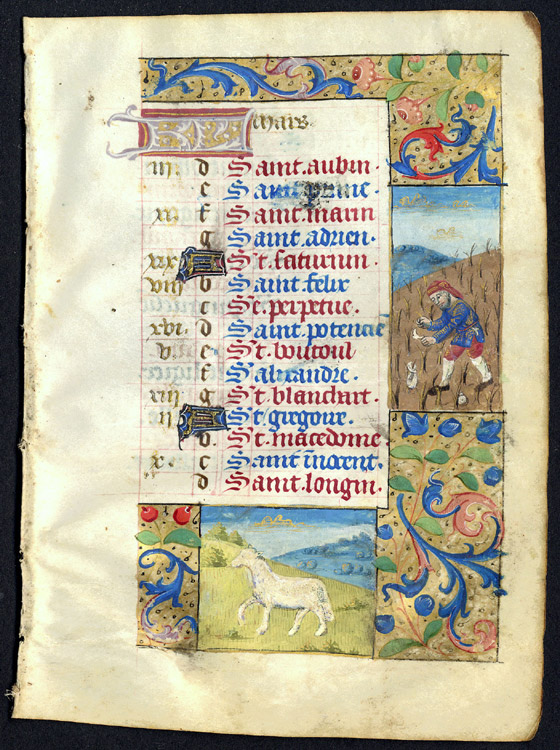 KL mars.
iii. d Saint.aubin.
e Saint prime.
xi. f Saint.marin
g Saint.adrien.
xix. A St.saturnin.
viii b Saint.felix
c St.perpetue.
xvi. d Saint.potencien
v. e St.boutoul
f S.alixandre.
xiii g St.blanchart.
ii A St.gregoire.
b. St.macedoine.
x. c Saint innocent.
d Saint.longin.